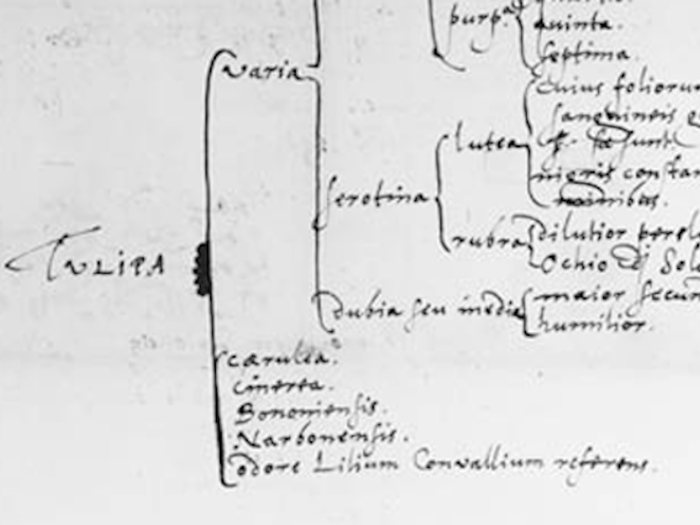 purp.ª
quinta.
septima.
varia
cuius foliorum
sanguineis
lutea
sunt
nigris constan
serotina
rubra
dilutior
Ochio di Sol
TVLIPA
dubia seu media
maior secun
humilior.
cærulea.
cinerea.
Bononiensis.
Narbonensis.
odore Lilium Convallium referens.